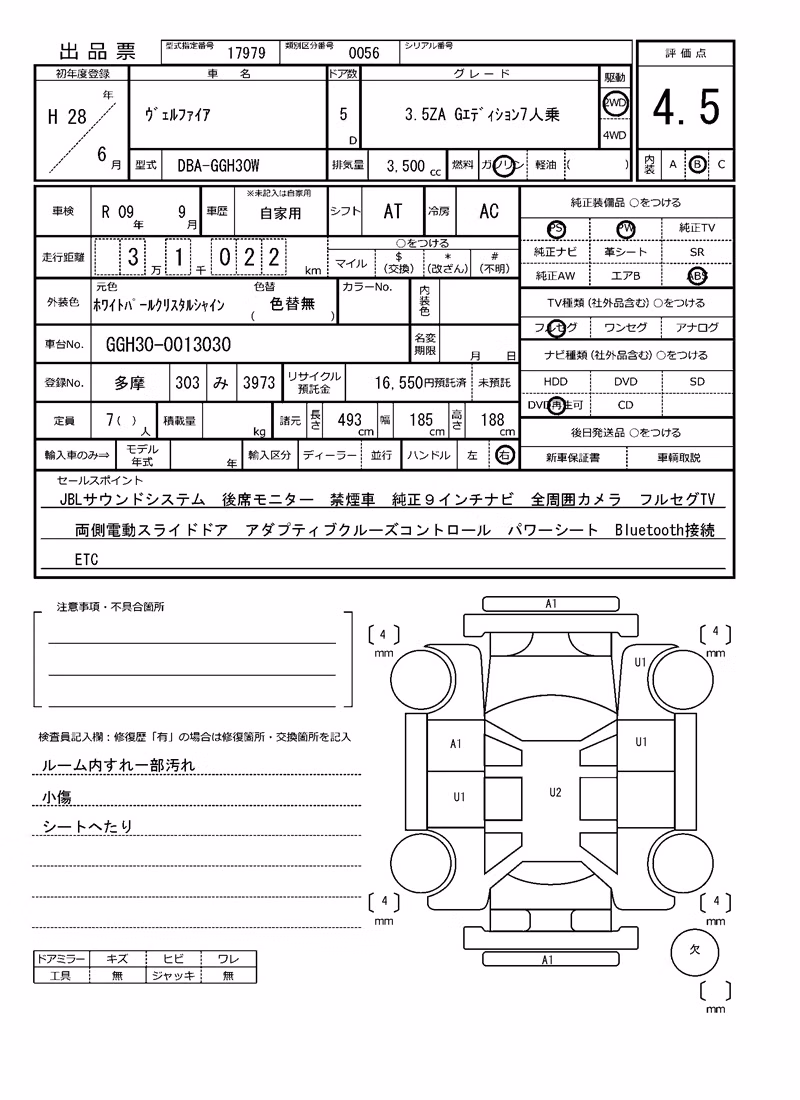 出品票 型式指定番号 17979 類別区分番号 0056 シリアル番号
評価点
4.5
内装 A B C
初年度登録 車名 ドア数 グレード 駆動
H 28 年 6 月 ヴェルファイア 5 D 3.5ZA Gエディション7人乗 2WD
4WD
型式 DBA-GGH30W 排気量 3,500 cc 燃料 ガソリン 軽油 ( )
車検 R 09 年 9 月 車歴 ※未記入は自家用 自家用 シフト AT 冷房 AC
走行距離 3 万 1 千 0 2 2 km ○をつける
マイル $(交換) *(改ざん) #(不明)
外装色 元色 ホワイトパールクリスタルシャイン 色替 ( 色替無 ) カラーNo. 内装色
車台No. GGH30-0013030 名変期限 月 日
登録No. 多摩 303 み 3973 リサイクル預託金 16,550円預託済 未預託
定員 7( ) 人 積載量 kg 諸元 長さ 493 cm 幅 185 cm 高さ 188 cm
輸入車のみ⇒ モデル年式 年 輸入区分 ディーラー 並行 ハンドル 左 右
純正装備品 ○をつける
PS PW 純正TV
純正ナビ 革シート SR
純正AW エアB ABS
TV種類(社外品含む)○をつける
フルセグ ワンセグ アナログ
ナビ種類(社外品含む)○をつける
HDD DVD SD
DVD再生可 CD
後日発送品 ○をつける
新車保証書 車輌取説
セールスポイント
JBLサウンドシステム 後席モニター 禁煙車 純正9インチナビ 全周囲カメラ フルセグTV
両側電動スライドドア アダプティブクルーズコントロール パワーシート Bluetooth接続
ETC
注意事項・不具合箇所
検査員記入欄:修復歴「有」の場合は修復箇所・交換箇所を記入
ルーム内すれ一部汚れ
小傷
シートへたり
ドアミラー キズ ヒビ ワレ
工具 無 ジャッキ 無
A1
[4] mm
[4] mm
U1
A1
U1
U1
U2
[4] mm
[4] mm
A1
欠
[ ] mm